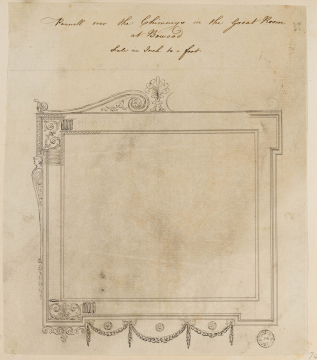 Pannell over the Chimneys in the Great Room
at Bowood
Scale an Inch to a foot